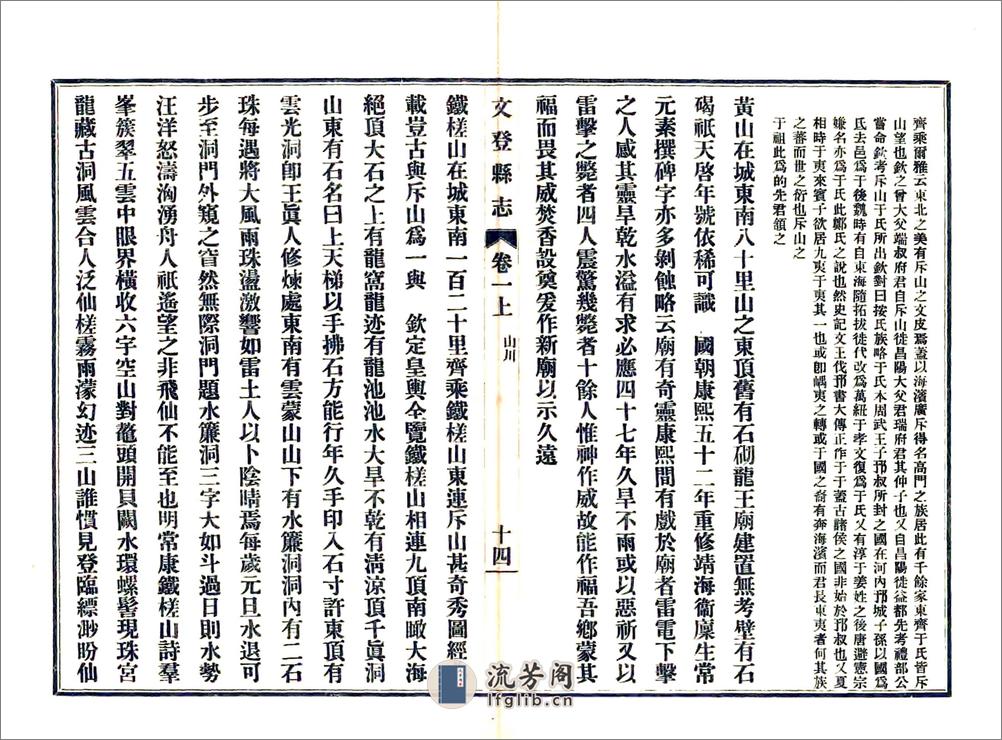 齊乘爾雅云東北之美有斥山之文皮焉蓋以海濱廣斥得名高門之族居此有千餘家東齊于氏皆斥
山望也欽之曾大父端叔府君自斥山徙昌陽大父君瑞府君其仲子也又自昌陽徙益都先考禮部公
嘗命欽考斥山于氏所出欽對曰按氏族略于氏本周武王子邘叔所封之國在河內邘城子孫以國爲
氏去邑爲于後魏時有自東海隨拓拔徙代改爲萬紐于孝文復爲于氏又有淳于姜姓之後唐避憲宗
嫌名亦爲于氏此鄭氏之說也然史記文王伐邘書大傳正作于于蓋古諸侯之國非始於邘叔也又夏
相時于夷來賓子欲居九夷于夷其一也或卽嵎夷之轉或于國之裔有奔海濱而君長東夷者何其族
之蕃而世之衍也斥山之
于祖此爲的先君頷之
黃山在城東南八十里山之東頂舊有石砌龍王廟建置無考壁有石
碣祇天啓年號依稀可識　國朝康熙五十二年重修靖海衞廩生常
元素撰碑字亦多剝蝕略云廟有奇靈康熙間有戲於廟者雷電下擊
之人感其靈旱乾水溢有求必應四十七年久旱不雨或以惡祈又以
雷擊之斃者四人震驚幾斃者十餘人惟神作威故能作福吾鄉蒙其
福而畏其威焚香設奠爰作新廟以示久遠
文登縣志　卷一上　山川　十四
鐵槎山在城東南一百二十里齊乘鐵槎山東連斥山甚奇秀圖經
載豈古與斥山爲一與　欽定皇輿全覽鐵槎山相連九頂南瞰大海
絕頂大石之上有龍窩龍迹有龍池池水大旱不乾有淸涼頂千眞洞
山東有石名曰上天梯以手拂石方能行年久手印入石寸許東頂有
雲光洞卽王眞人修煉處東南有雲蒙山山下有水簾洞洞內有二石
珠每遇將大風雨珠盪激響如雷土人以卜陰晴焉每歲元旦水退可
步至洞門外窺之窅然無際洞門題水簾洞三字大如斗過日則水勢
汪洋怒濤洶湧舟人祇遙望之非飛仙不能至也明常康鐵槎山詩羣
峯簇翠五雲中眼界橫收六字空山對鼇頭開貝闕水環螺髻現珠宮
龍藏古洞風雲合人泛仙槎霧雨濛幻迹三山誰慣見登臨縹渺盼仙
流芳阁
lfglib.cn